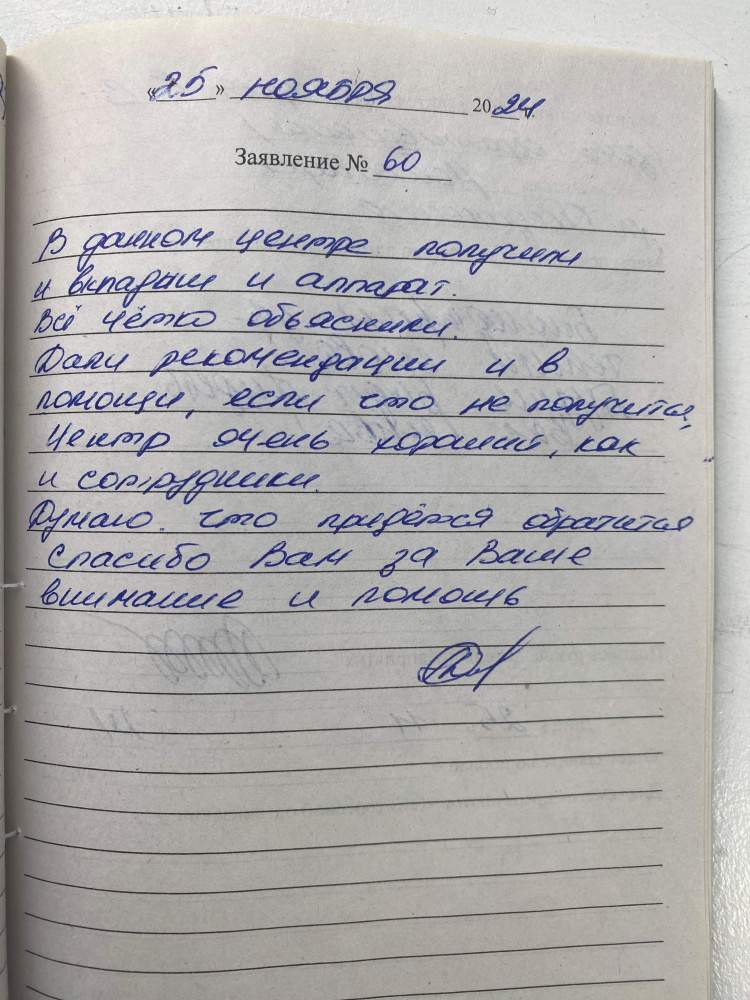 «25» ноября 2024.
Заявление № 60
В данном центре получили
и вкладыш и аппарат.
Всё чётко объяснили.
Дали рекомендации и в
помощи, если что не получится,
Центр очень хороший, как
и сотрудники.
Думаю. что придётся обратится
Спасибо Вам за Ваше
внимание и помощь